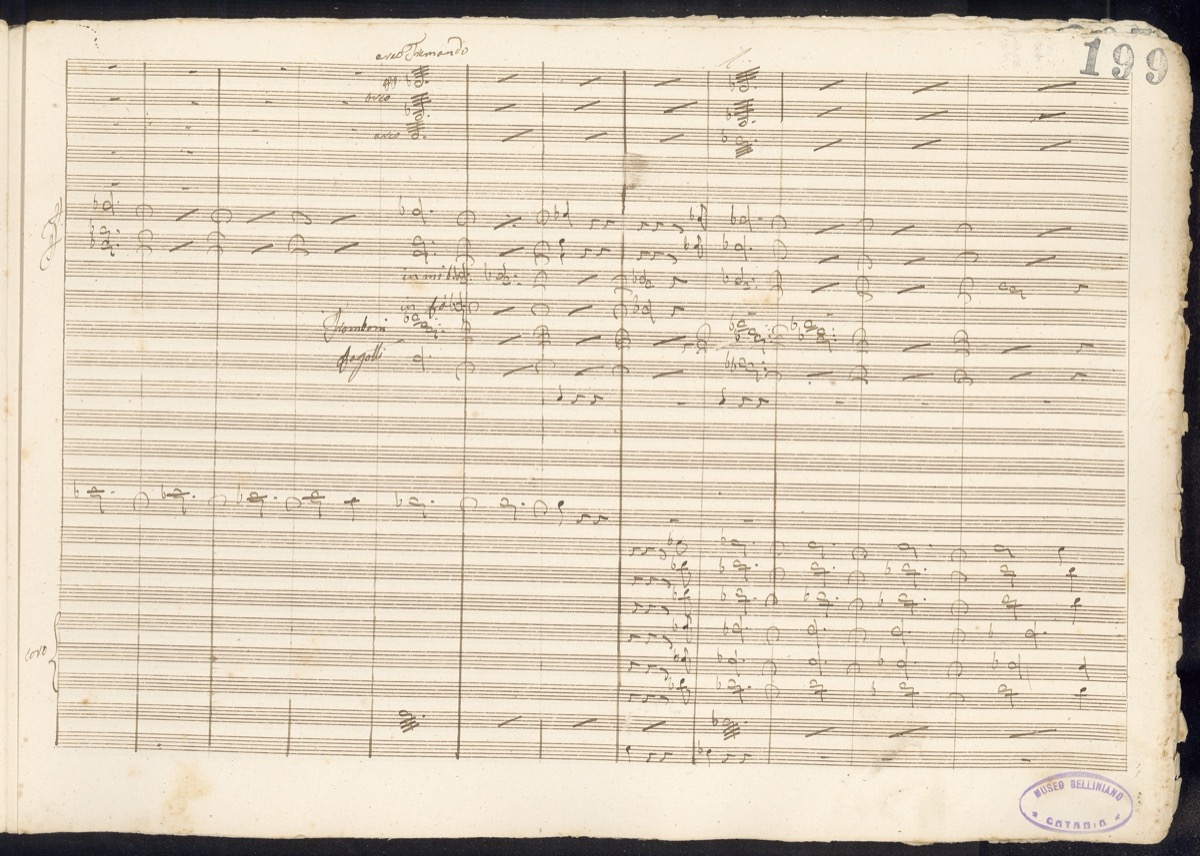 199
arco Tremando
arco
arco
in mi b
in fa
Tromboni
fagotti
coro
MUSEO BELLINIANO
CATANIA